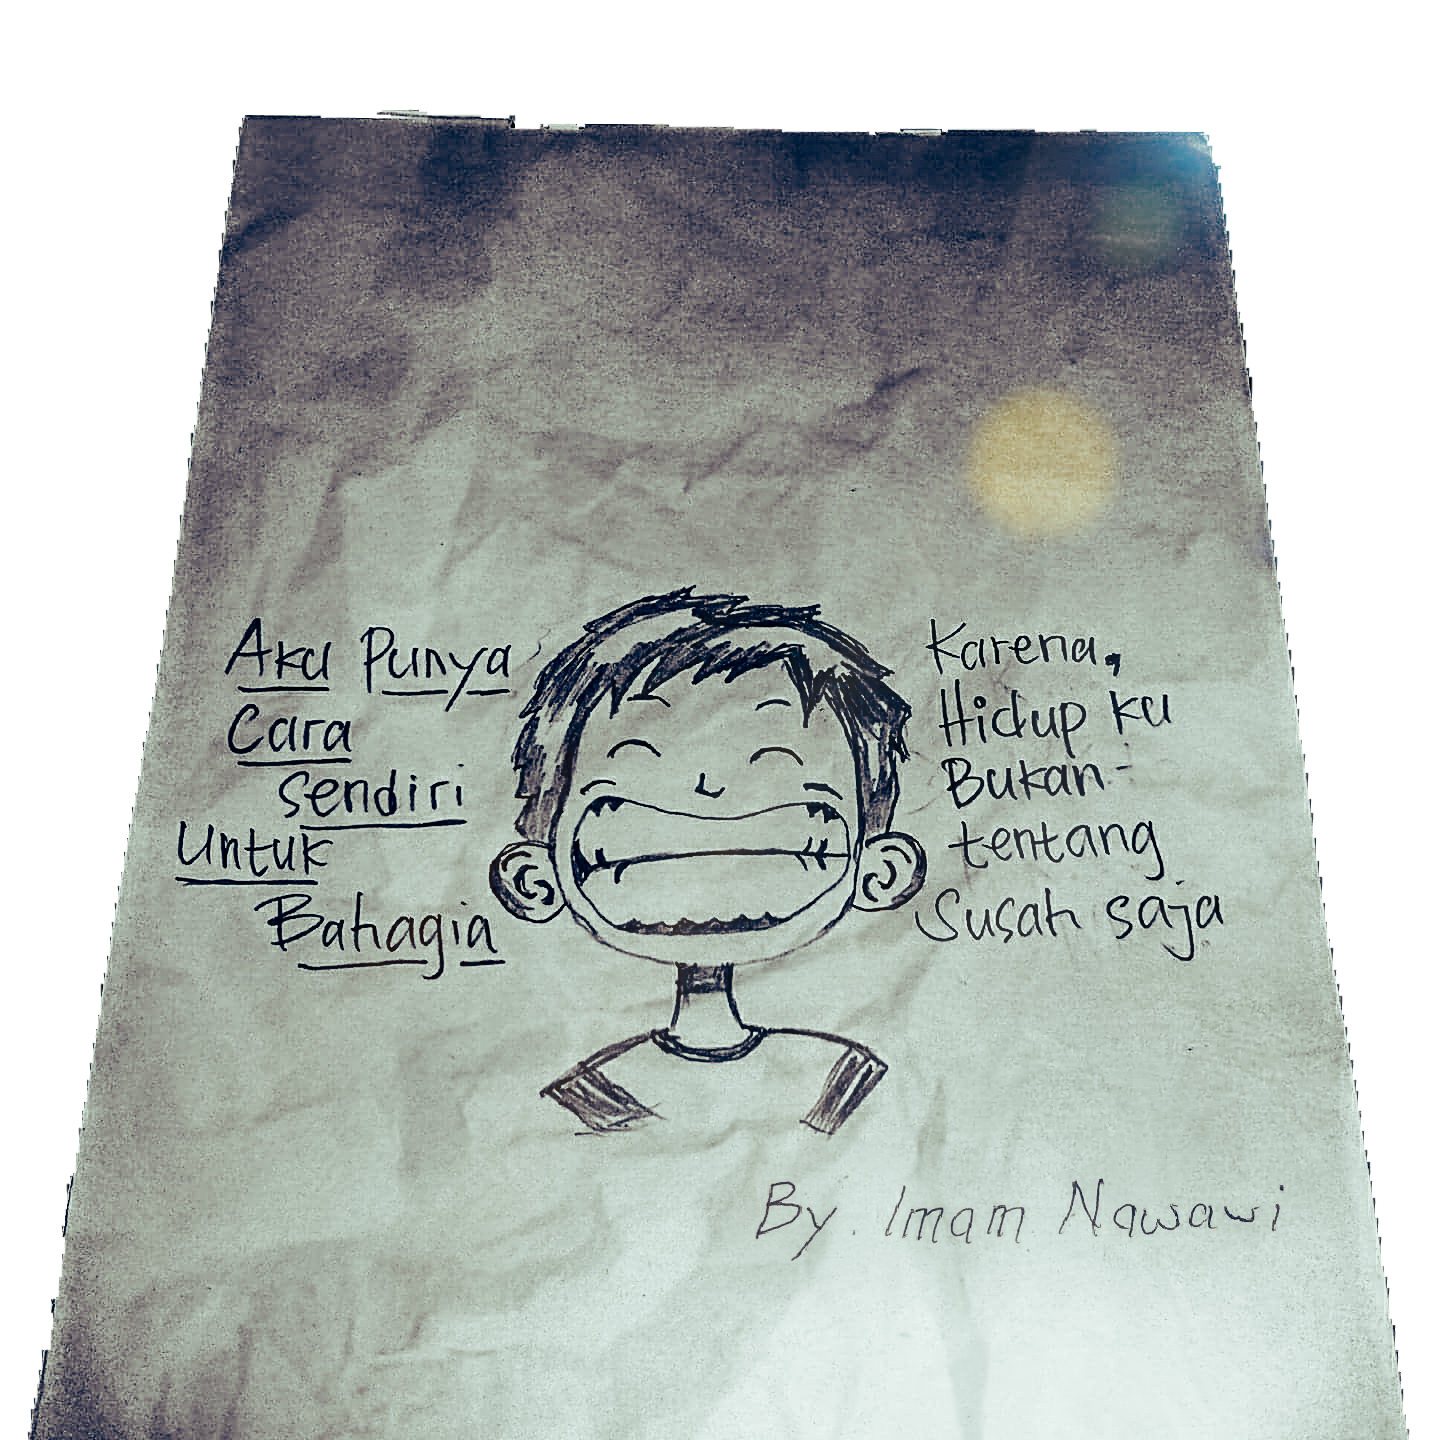 Aku Punya
Cara
Sendiri
Untuk
Bahagia
Karena,
Hidup ku
Bukan-
tentang
Susah saja
By. Imam Nawawi